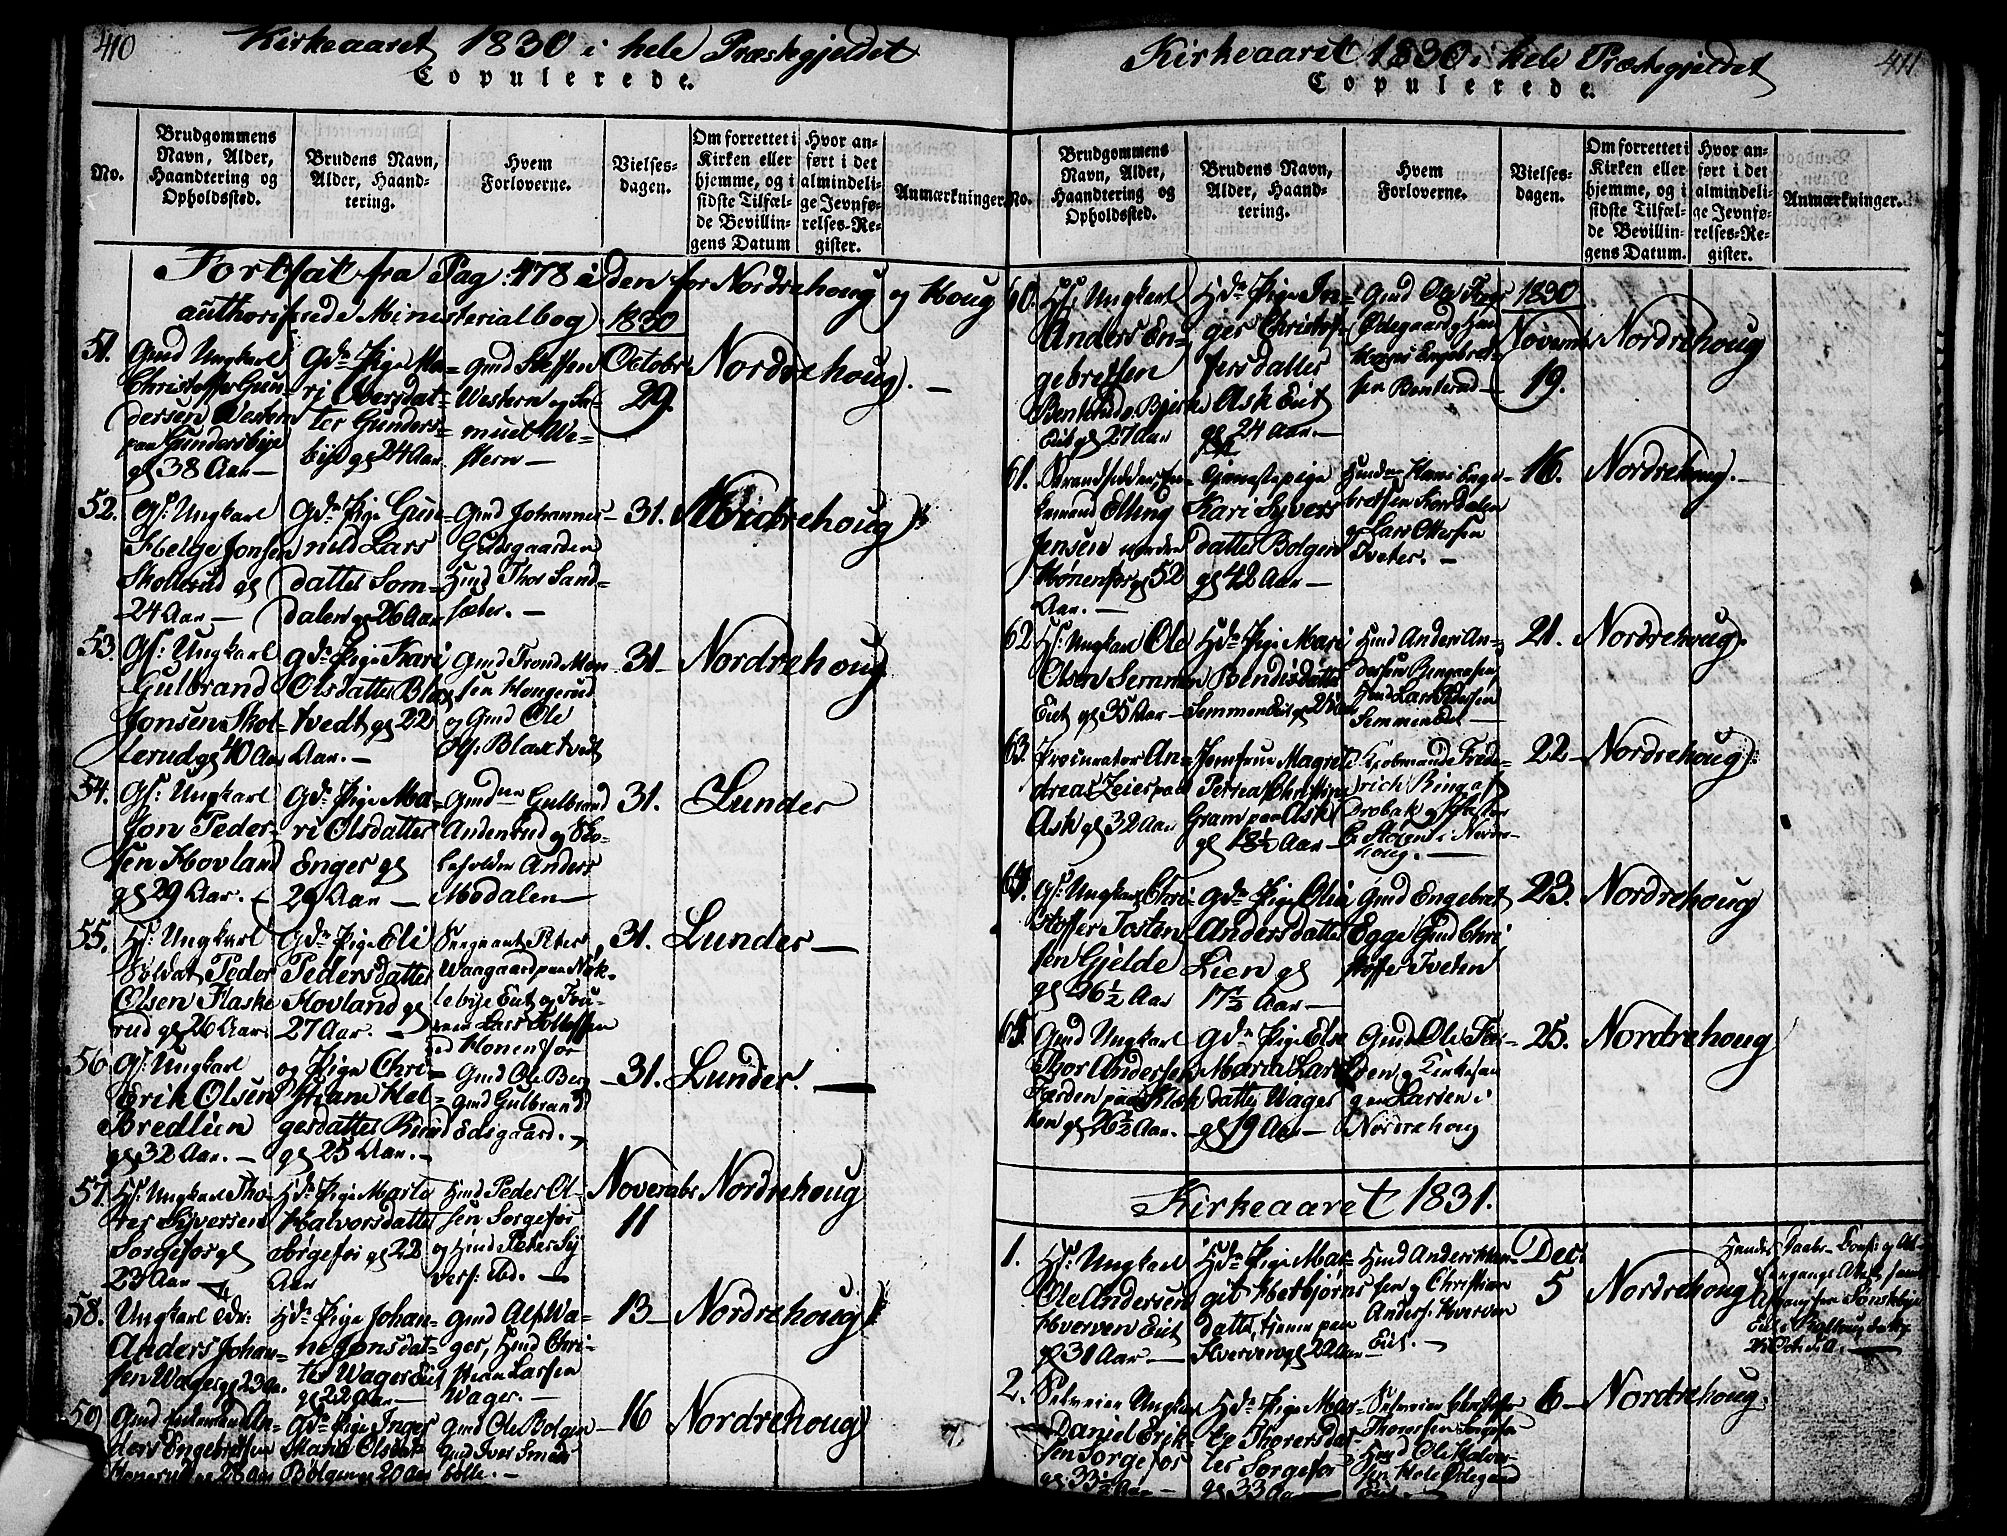 410
Kirkeaaret 1830 i hele Præstegjeldet
Copulerede.
No.
Brudgommens
Navn, Alder,
Haandtering og
Opholdssted.
Brudens Navn,
Alder, Haand-
tering.
Hvem
Forloverne.
Vielses-
dagen.
Om forrettet i
Kirken eller
hjemme, og i
sidste Tilfæl-
de Bevillin-
gens Datum
Hvor an-
ført i det
almindeli-
ge Jevnfø-
relses-Re-
gister.
Anmærkninger.
Fortsat fra Pag: 478 i den for Nordrehoug og Houg
authoriserede Ministerialbog
1830
51.
Gmd Ungkarl
Christoffer Gun-
dersen Western
paa Gundersbye
gl 38 Aar —
Gdr Pige Ma-
ri Iversdat-
ter Gunders-
bye gl 24 Aar
Gmd Steffen
Western og Sa-
muel We-
stern —
Octobr
29.
Nordrehoug. —
52.
Gs: Ungkarl
Helge Jonsen
Skollerud gl
24 Aar —
Gdr Pige Gun-
nild Lars
datter Som-
dalen gl 26 Aar
Gmd Johannes
Guldsgaarden
Hmd Thor Sand-
sæter. —
31.
Nordrehoug
53.
Gs: Ungkarl
Gulbrand
Jonsen Skol-
lerud gl 40 Aar
Gdr Pige Kari
Olsdatter Blax
tvedt gl 22
Aar. —
Gmd Trond Mon
sen Hougerud
og Gmd Ole
Blaxtvet
31
Nordrehoug
54.
Gs: Ungkarl
Jon Peder-
sen Hovland
gl 29 Aar. —
Gdr Pige Ma-
ri Olsdatter
Enger gl
29 Aar —
Gmdne Gulbrand
Andersrud og
Anders
Modalen —
31.
Lunder
55.
Hs: Ungkarl
Soldat Peder
Olsen Flaske
rud gl 26 Aar.
Gdr Pige Eli
Pedersdatter
Hovland gl
27 Aar. —
Sergeant Peter
Waagaard paa
lebye Eiet og
Lars Tollefsen
Honenfos
31.
Lunder —
56
Gs: Ungkarl
Erik Olsen
Bredlien
gl 32 Aar. —
og Pige Chri-
stiane Hel-
gesdatter Rud
gl 25 Aar. —
Gmd Ole Berg
Gmd Gulbrand
Eidsgaard. —
31.
Lunder. —
57.
Hs: Ungkarl Tho-
res Syversen
Sorgefos gl
23 Aar —
Hdr Pige Marte
Halvorsdatter
Sørgefos gl 22
Aar
Hmd Peder Ol-
sen Sorgefos
og Hmd Peter Sy
vers: ibd. —
Novembr
11
Nordrehoug
58.
Ungkarl
Anders Johan-
sen Wager gl 23 Aa.
Hdr Pige Johan-
ne Jonsdat-
ter Wager Eiet
gl 22 Aar —
Gmd Alf Wa-
ger, Hmd Chri-
stian Larsen
Wager. —
13
Nordrehoug
59
Gmd Enkemand An-
ders Engebretsen
Honerud gl 28 Aar
Gdr Pige Inger
Maria Olsdat-
Bölgen gl 20 Aar
Gmd Ole Bolgen
Gmd Iver Smed-
bölle. —
16
Nordrehoug
411
Kirkeaaret 1830 i hele Præstegjeldet
Copulerede.
No.
Brudgommens
Navn, Alder,
Haandtering og
Opholdssted.
Brudens Navn,
Alder, Haand-
tering.
Hvem
Forloverne.
Vielses-
dagen.
Om forrettet i
Kirken eller
hjemme, og i
sidste Tilfæl-
de Bevillin-
gens Datum.
Hvor an-
ført i det
almindeli-
ge Jevnfø-
relses-Re-
gister.
Anmærkninger.
60.
Hs: Ungkarl
Anders En-
gebretsen
Benterud Bjerke
Eiet gl 27 Aar
Hdr Pige In-
ger Christof-
fersdatter
Ask Eiet
gl 24 Aar. —
Gmd Ole
Ødegaard og Hans
Engebret-
sen Benterud —
1830
Novemb
19.
Nordrehoug
61.
Strandsidder, En-
kemand Elling
Jensen
Hønenfos gl 52
Aar. —
Tjenestepige
Kari Syvers
datter Bolgen
gl 42 Aar —
Hmdne Hans Enge-
bretsen Skordalen
og Lars Ottersen
Tveter. —
16.
Nordrehoug. —
62
Hs: Ungkarl Ole
Olsen Semmen
Eiet gl 35 Aar —
Hdr Pige Mari
Bendixdatter
Semmen Eiet gl 24 Aar
Hmd Anders An-
dersen
Hmd Lars Pedersen
Semmen Eiet —
21.
Nordrehoug.
63.
Procurator An-
dreas Zeier paa
Ask gl 32 Aar
Jomfrue Magrete
Perrea Christine
Gram paa Ask
gl 18½ Aar —
Kjobmand Frede-
rich Ring af
Drobak og
i Nordre-
houg. —
22
Nordrehoug
64.
Gs: Ungkarl Chri-
stoffer Tosten-
sen Gjelde
gl 26½ Aar
Gdr Pige Olia
Andersdatter
Lien gl
17½ Aar —
Gmd Engebret
Egge Gmd Chri
stoffer Tveten
23.
Nordrehoug
65
Gmd Ungkarl
Thor Andersen
Færden paa
gl 26½ Aar. —
Gdr Pige Else
Maria Lars
datter Wager
gl 19 Aar —
Gmd Ole Fær-
den og Kirkesan
ger Larsen i
Nordrehoug
25.
Nordrehoug
Kirkeaaret 1831.
1.
Hs: Ungkarl
Ole Andersen
Hverven Eiet
gl 31 Aar —
Hdr Pige Mar-
git Herbjørns
datter, tjener paa
Hverven gl 22 Aar
Hmd Anders Han-
sen og Christian
Anders: Hverven
Eiet. —
Decr:
5
Nordrehoug
2.
Selveier Ungkarl
Daniel Erik-
sen Sorgefos
gl 33½ Aar —
Hdr Pige Mar-
te Thorersdat-
ter Sorgefos
gl 33 Aar —
Selveier Christoffer
Thoresen Sorgefos
Hmd Ole Halvor-
sen Hole Ødegaard
Eiet —
6
Nordrehoug